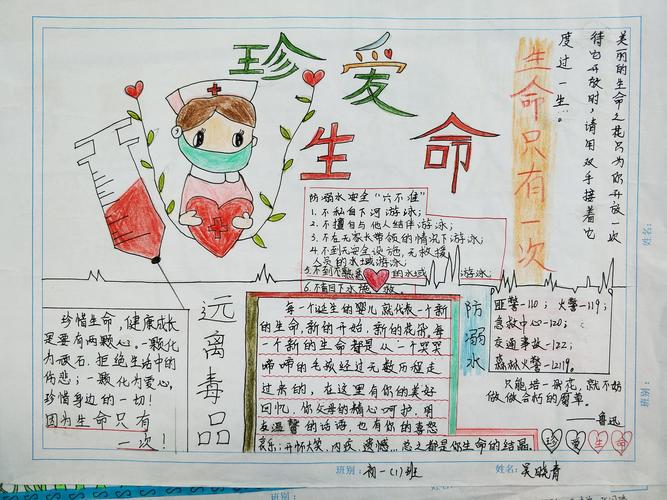 珍爱
生命
生命只有一次
美丽的生命之花只为你开放一次
待它开放时,请用双手接着它
度过一生。
防溺水安全“六不准”
1.不私自下河游泳;
2.不擅自与他人结伴游泳;
3.不在无家长带领的情况下游泳;
4.不到无安全设施,无救援
人员的水域游泳;
5.不到不熟悉的水域游泳
6.不盲目下水施救
珍惜生命,健康成长
是要有两颗心。一颗化
为顽石,拒绝生活中的
伤悲;一颗化为爱心,
珍惜身边的一切!
因为生命只有
一次!
远离毒品
每一个诞生的婴儿就代表一个新
的生命,新的开始,新的花骨,每
一个新的生命都是从一个哭哭
啼啼的毛孩经过无数历程走
过来的,在这里有你的美好
回忆,你父母的精心呵护,朋
友温馨的话语,也有你的喜怒
哀乐;开怀大笑,内疚,遗憾...总之都是你生命的结晶.
防溺水
匪警-110;火警-119;
急救中心-120;
交通事故-122;
森林火警-12119.
只能培一朵花,就不妨
做做会朽的腐草。
——鲁迅
珍爱生命
班别:初一(1)班
姓名:吴晓青
姓名:
班别:
班别:
姓名: